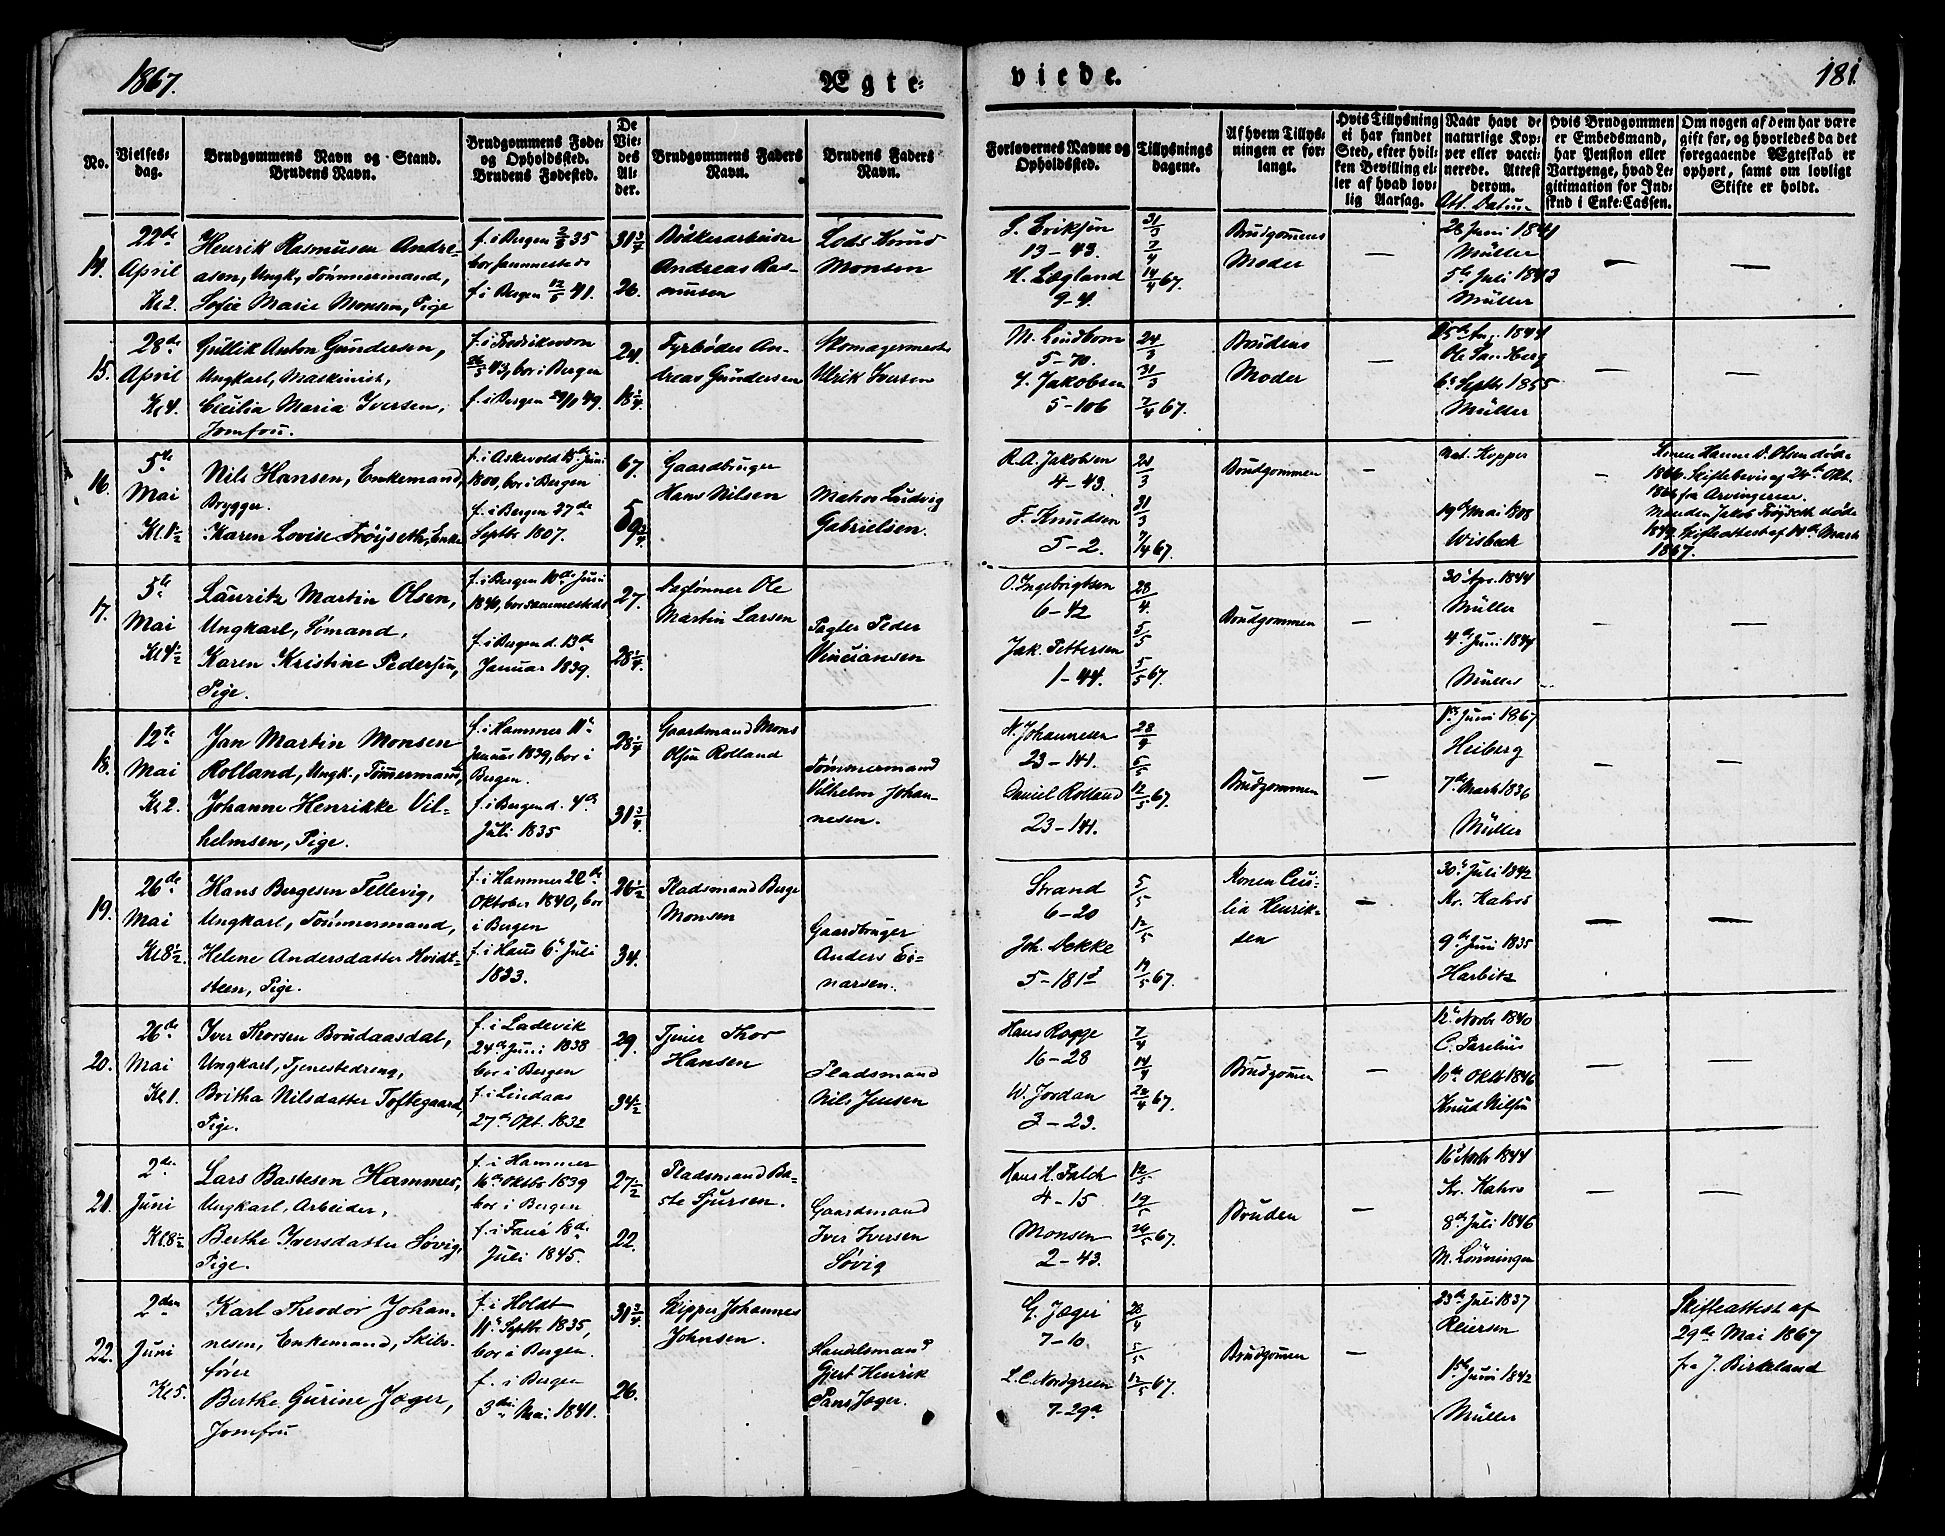 1867.
Ægte-
viede.
181
No.
Vielses-
dag.
Brudgommens Navn og Stand.
Brudens Navn.
Brudgommens Føde-
og Opholdssted.
Brudens Fødested.
De
Vie-
des
Al-
der.
Brudgommens Faders
Navn.
Brudens Faders
Navn.
Forlovernes Navne og
Opholdssted.
Tillysnings
dagene.
Af hvem Tillys-
ningen er for-
langt.
Hvis Tillysning
ei har fundet
Sted, efter hvil-
ken Bevilling el-
ler af hvad lov-
lig Aarsag.
Naar havt de
naturlige Kop-
per eller vacci-
nerede. Attest
derom.
Att. Datum
Hvis Brudgommen
er Embedsmand,
har Pension eller
Vartpenge, hvad Le-
gitimation for Ind-
skud i Enke-Cassen.
Om nogen af dem har være
gift før, og hvorledes da det
foregaaende Ægteskab er
ophørt, samt om lovligt
Skifte er holdt.
14.
22de
April
Kl 2.
Henrik Rasmusen Andre-
asen, Ungk., Tømmermand,
Sofie Marie Monsen, Pige
f. i Bergen 2/8 35
bor sammesteds
f. i Bergen 12/5 41.
31 3/7
26.
Bødkerarbeider
Andreas Ras-
musen
Lods Knud
Monsen
S. Eriksen
13-43.
H. Lægland
9-4.
31/3
7/4
14/4 67.
Brudgommens
Moder
—
28 Juni 1841
Müller
5te Juli 1843
Müller
—
—
15.
28de
April
Kl 4.
Gullik Anton Gundersen,
Ungkarl, Maskinist,
Cecilia Maria Iversen,
Jomfru.
f. i Fredriksværn
26/3 43, bor i Bergen
f. i Bergen 29/1 49.
24
18 1/4
Fyrbøder An-
dreas Gundersen
Skomagermester
Ulrik Iversen
M. Lindbom
5-70.
J. Jakobsen
5-106
24/3
31/3
7/4 67.
Brudens
Moder
—
25de Aug. 1844
Ole Sandberg
6te Septbr 1855
Müller
—
—
16.
5te
Mai
Kl. 1 1/2
Nils Hansen, Enkemand,
Brygger.
Karen Lovise Frøyseth, Enke
f. i Askevold 15de Juni
1800, bor i Bergen
f. i Bergen 27de
Septbr 1807.
67.
59 3/4
Gaardbruger
Hans Nilsen
Mathies Ludvig
Gabrielsen.
R. A. Jakobsen
4-43.
F. Knudsen
5-2.
24/3
31/3
7/4 67.
Brudgommen
—
nat. Kopper
19de Mai 1808
Wisbech
—
Konen Hanne D. Olsen døde
1866. Skiftebevis af 24de Okt.
1866 fra Arvingerne.
Manden Jakob Frøyseth døde
1849. Skifteattest af 14de Marts
1867.
17.
5te
Mai
Kl 4 1/2
Lauritz Martin Olsen,
Ungkarl, Sømand,
Karen Kristine Pedersen,
Pige.
f. i Bergen 10de Juni
1840, bor sammesteds
f. i Bergen d. 13de
Januar 1839.
27.
28 1/4.
Ole
Martin Larsen
Pagter Peder
Vinciansen
O. Ingebrigtsen
6-42
Jak. Pettersen
1-44.
28/4.
5/5
5/5 67.
Brudgommen
—
30te Apr. 1844
Müller
4de Juni 1844
Müller
—
—
18.
12te
Mai
Kl 2.
Jan Martin Monsen
Rolland, Ungk., Tømmermand,
Johanne Henrikke Vil-
helmsen, Pige.
f. i Hammer 11te
Januar 1839, bor i
Bergen.
f. i Bergen d. 4de
Juli 1835
28 1/4
31 3/4.
Gaardmand Mons
Olsen Rolland
Tømmermand
Vilhelm Johan-
nesen.
N. Johannesen
23-141.
Daniel Rolland
23-141.
28/4
5/5
12/5 67.
Brudgommen
—
1ste Juni 1867
Heiberg
7de Marts 1836
Müller
—
—
19.
26de
Mai
Kl 8 1/2.
Hans Bergesen Tellevig,
Ungkarl, Tømmermand,
Helene Andersdatter Hvidt-
steen, Pige.
f. i Hammer 22de
Oktober 1840, bor
i Bergen
f. i Haus 6te Juli
1833.
26 1/2
34.
Pladsmand Berge
Monsen
Gaardbruger
Anders Ei-
narsen.
Strand
6-20
Joh. Dekke
5-181
5/5
12/5
19/5 67.
Konen Ceci-
lia Henrik-
sen
—
30te Juli 1842
Kr. Kahrs
9de Juni 1835
Harbitz
—
—
20.
26de
Mai
Kl 1.
Iver Thorsen Brudaasdal,
Ungkarl, Tjenestedreng,
Britha Nilsdatter Toftegaard,
Pige.
f. i Ladevik
24de Juni 1838
bor i Bergen
f. i Lindaas
27de Okt. 1832
29.
34 1/2
Tjener Thor
Hansen
Pladsmand
Nils Jensen
Hans Rogge
16-28
W. Jordan
3-23.
7/4
14/4
22/4 67.
Brudgommen
—
12te Novbr 1840
C. Parelius
10de Oktbr 1846
Knud Nilsen
—
—
21.
2den
Juni
Kl. 8 1/2
Lars Bastesen Hammer,
Ungkarl, Arbeider,
Berthe Iversdatter Søvig,
Pige.
f. i Hammer
16de Oktbr 1839
bor i Bergen
f. i Fanø 18de
Juli 1845.
27 1/2
22.
Pladsmand Ba-
ste Sjursen.
Gaardmand
Iver Iversen
Søvig
Hans H. Falch
4-15
Monsen
2-43.
12/5
19/5
26/5 67.
Bruden
—
16de Novbr 1844
Kr. Kahrs
8de Juli 1846
M. Lønningen
—
—
22.
2den
Juni
Kl 5.
Karl Theodor Johan-
nesen, Enkemand, Skibs-
fører
Berthe Gurine Jæger,
Jomfru
f. i Holdt
11te Septbr 1835,
bor i Bergen.
f. i Bergen
3die Mai 1841.
31 3/4
26.
Skipper Johannes
Johnsen.
Handelsmand
Gjert Henrik
Pans Jæger.
G. Jæger
7-10.
L. C. Nordgreen
7-29a
28/4
5/5
12/5 67.
Brudgommen
—
23de Juli 1837
Reiersen
1ste Juni 1842
Müller
Skifteattest af
29de Mai 1867
fra J. Birkeland